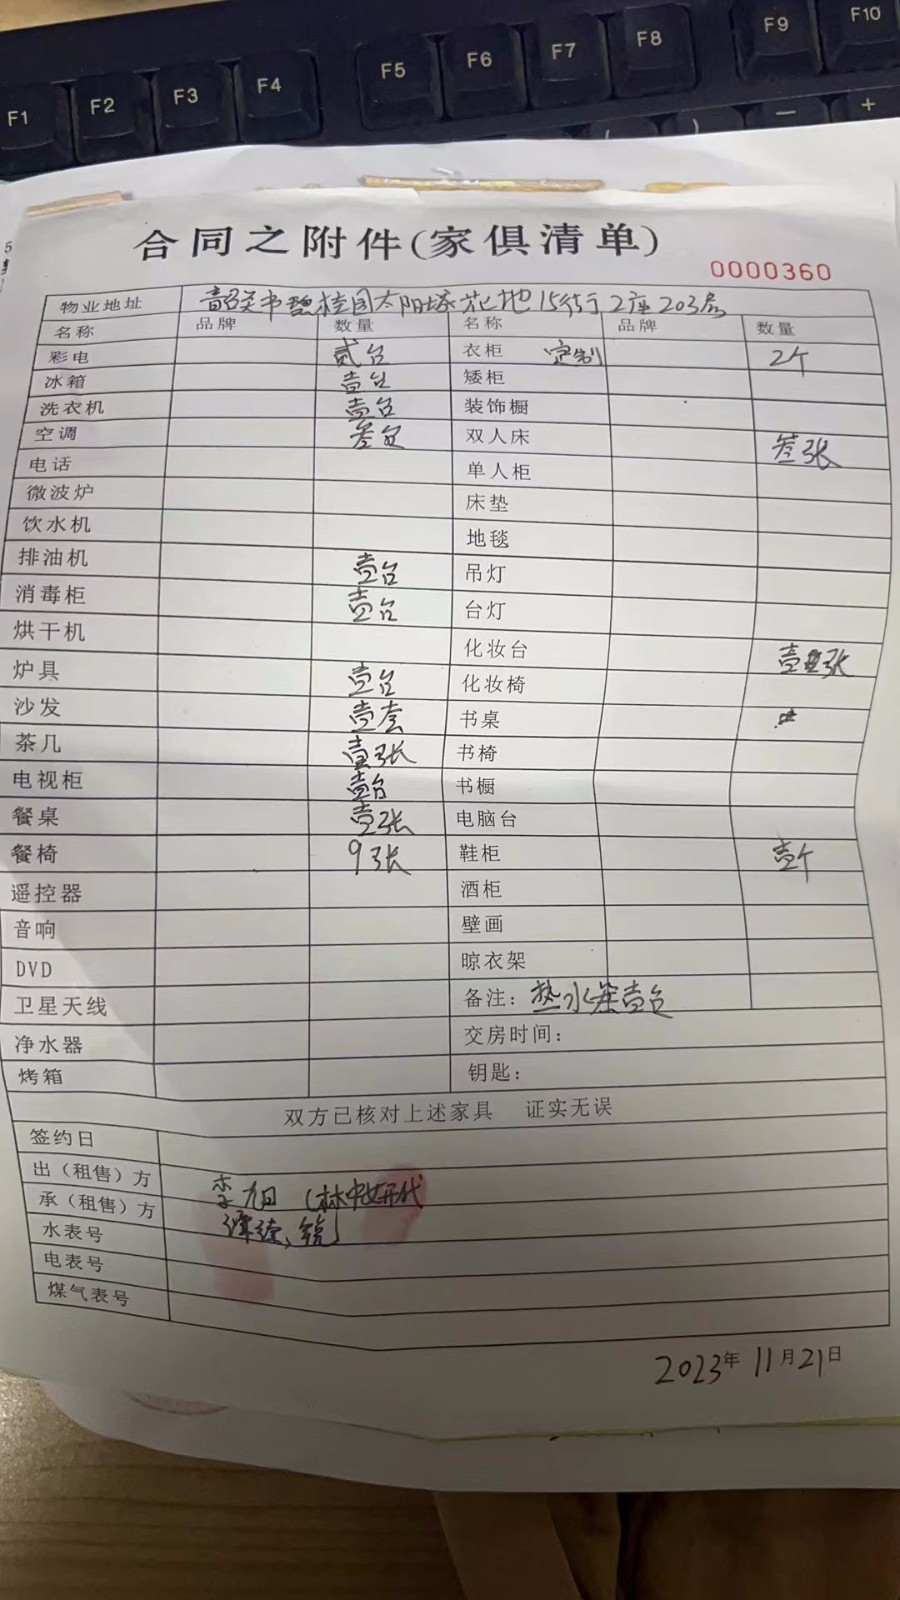 F1 F2 F3 F4 F5 F6 F7 F8 F9 F10
) — +
合同之附件(家俱清单)
0000360
物业地址 韶关市碧桂园太阳城花地15街2座203房
名称 品牌 数量 名称 品牌 数量
彩电 贰台 衣柜 定制 2个
冰箱 壹台 矮柜
洗衣机 壹台 装饰橱
空调 叁台 双人床 叁张
电话 单人柜
微波炉 床垫
饮水机 地毯
排油机 壹台 吊灯
消毒柜 壹台 台灯
烘干机 化妆台 壹张
炉具 壹台 化妆椅
沙发 壹套 书桌
茶几 壹张 书椅
电视柜 壹台 书橱
餐桌 壹张 电脑台
餐椅 9张 鞋柜 壹个
遥控器 酒柜
音响 壁画
DVD 晾衣架
卫星天线 备注: 热水器壹台
净水器 交房时间:
烤箱 钥匙:
双方已核对上述家具 证实无误
签约日
出(租售)方 李旭(林 代
承(租售)方
水表号
电表号
煤气表号
2023年11月21日